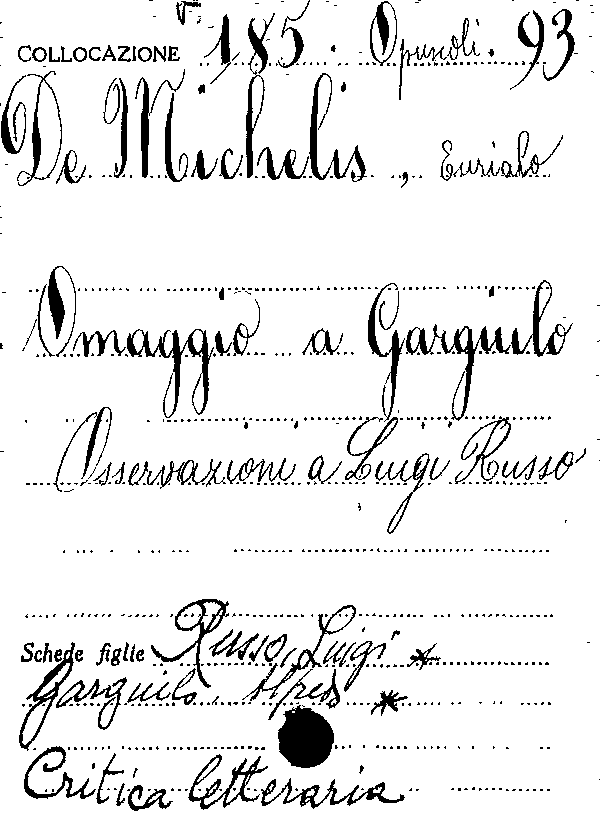 COLLOCAZIONE V. 185. Opuscoli. 93
De Michelis, Eurialo
Omaggio a Garguilo
Osservazioni a Luigi Russo
Schede figlie Russo, Luigi *
Garguilo, Alfredo *
Critica letteraria